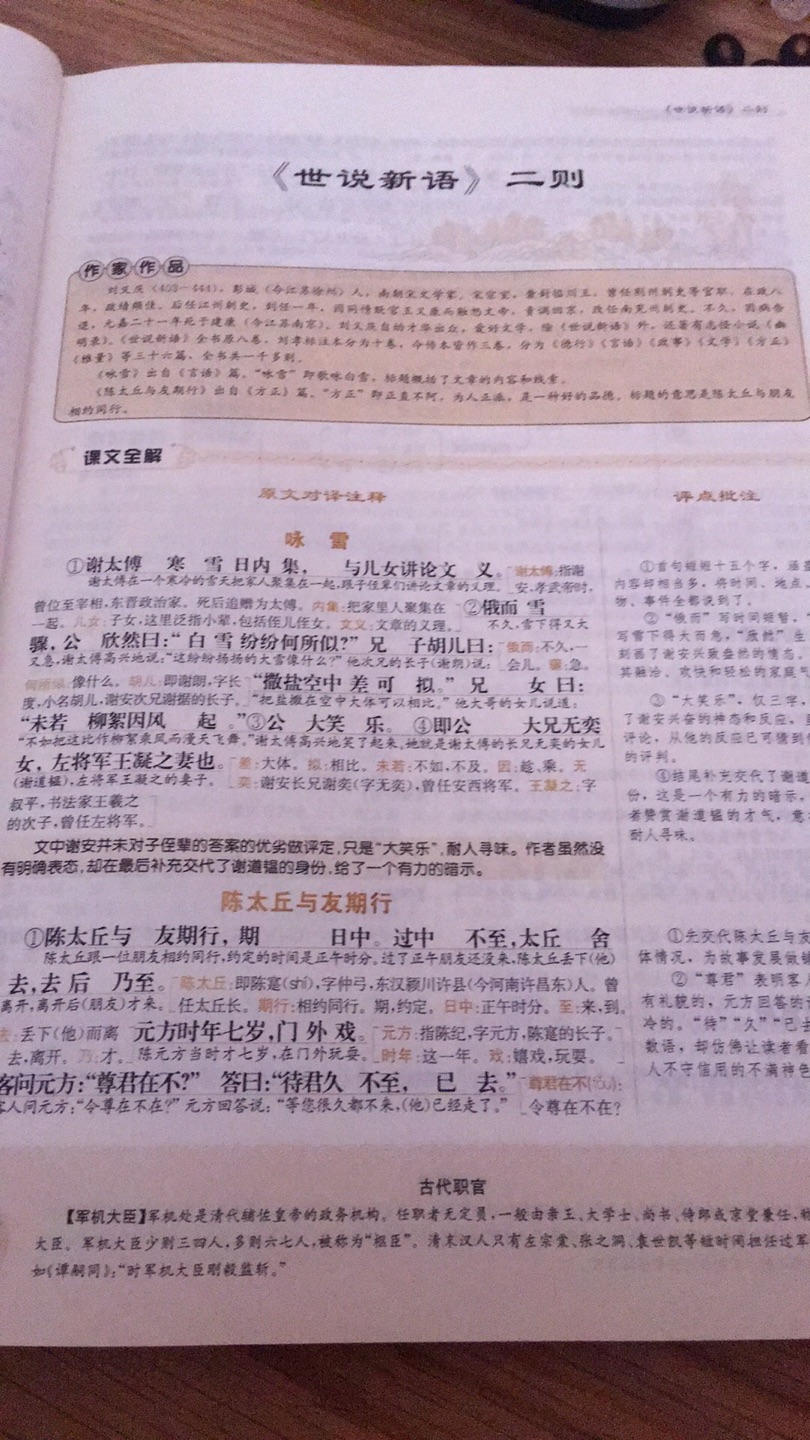 《世说新语》二则
《世说新语》二则
作家作品
刘义庆（403—444），彭城（今江苏徐州）人，南朝宋文学家，宋宗室，袭封临川王，曾任荆州刺史等官职，在政八
年，政绩颇佳。后任江州刺史，到任一年，因同情贬官王义康而触怒文帝，责调回京，改任南兖州刺史。不久，因病告
退，元嘉二十一年死于建康（今江苏南京）。刘义庆自幼才华出众，爱好文学，除《世说新语》外，还著有志怪小说《幽
明录》。《世说新语》全书原八卷，刘孝标注本分为十卷，今传本皆作三卷，分为《德行》《言语》《政事》《文学》《方正》
《雅量》等三十六篇，全书共一千多则。
《咏雪》出自《言语》篇。“咏雪”即歌咏白雪，标题概括了文章的内容和线索。
《陈太丘与友期行》出自《方正》篇。“方正”即正直不阿，为人正派，是一种好的品德。标题的意思是陈太丘与朋友
相约同行。
课文全解
原文对译注释
评点批注
咏 雪
①谢太傅 寒 雪 日内 集， 与儿女讲论文 义。 谢太傅:指谢
谢太傅在一个寒冷的雪天把家人聚集在一起,跟子侄辈们讲论文章的义理。 安,孝武帝时,
曾位至宰相,东晋政治家。死后追赠为太傅。内集:把家里人聚集在 ②俄而 雪
一起。儿女:子女,这里泛指小辈,包括侄儿侄女。文义:文章的义理。 不久,雪下得又大
骤，公 欣然曰：“ 白 雪 纷纷何所似？” 兄 子胡儿曰： 俄而:不久,一
又急,谢太傅高兴地说:“这纷纷扬扬的大雪像什么?”他次兄的长子(谢朗)说: 会儿。骤:急。
何所似:像什么。胡儿:即谢朗,字长 “撒盐空中 差 可 拟。” 兄 女 曰：
度,小名胡儿,谢安次兄谢据的长子。 “把盐撒在空中大体可以相比。”他大哥的女儿说道:
“未若 柳絮因风 起 。”③公 大笑 乐。 ④即公 大兄无奕
“不如把这比作柳絮乘风而漫天飞舞。”谢太傅高兴地笑了起来。她就是谢太傅的长兄无奕的女儿
女，左将军王凝之妻也。 差:大体。拟:相比。未若:不如,不及。因:趁、乘。无
(谢道韫),左将军王凝之的妻子。 奕:谢安长兄谢奕(字无奕),曾任安西将军。王凝之:字
叔平,书法家王羲之
的次子,曾任左将军。
文中谢安并未对子侄辈的答案的优劣做评定,只是“大笑乐”,耐人寻味。作者虽然没
有明确表态,却在最后补充交代了谢道韫的身份,给了一个有力的暗示。
陈太丘与友期行
①陈太丘与 友期行，期 日中。过中 不至，太丘 舍
陈太丘跟一位朋友相约同行,约定的时间是正午时分。过了正午朋友还没来,陈太丘丢下(他)
去，去 后 乃至。 陈太丘:即陈寔(shí),字仲弓,东汉颍川许县(今河南许昌东)人。曾
离开,离开后(朋友)才来。 任太丘长。期行:相约同行。期,约定。日中:正午时分。至:来,到。
去:丢下(他)而离 元方时年七岁，门 外 戏。 元方:指陈纪,字元方,陈寔的长子。
去,离开。乃:才。 陈元方当时才七岁,在门外玩耍。 时年:这一年。戏:嬉戏,玩耍。
客问元方：“尊君在不？” 答曰：“待君久 不至， 已 去。” 尊君在不
客人问元方:“令尊在不在?”元方回答说:“等您很久都不来,(他)已经走了。” 令尊在不在?
①首句短短十五个字，涵
内容却相当多，将时间、地点、
物、事件全都说到了。
②“俄而”写时间短暂，“
写雪下得大而急，“欣然”生
刻画了谢安兴致盎然的情态。
其融洽、欢快和轻松的家庭气
③“大笑乐”，仅三字，
了谢安兴奋的神态和反应，
评论，从他的反应已可猜到
的评判。
④结尾补充交代了谢道
份，这是一个有力的暗示，
者赞赏谢道韫的才气，意
耐人寻味。
①先交代陈太丘与友
体情况，为故事发展做铺
②“尊君”表明客人
有礼貌的，元方回答的
冷的。“待”“久”“已去
数语，却仿佛让读者看
人不守信用的不满神色
古代职官
【军机大臣】军机处是清代辅佐皇帝的政务机构。任职者无定员,一般由亲王、大学士、尚书、侍郎或京堂兼任,
大臣。军机大臣少则三四人,多则六七人,被称为“枢臣”。清末汉人只有左宗棠、张之洞、袁世凯等短时间担任过军
如《谭嗣同》:“时军机大臣刚毅监斩。”